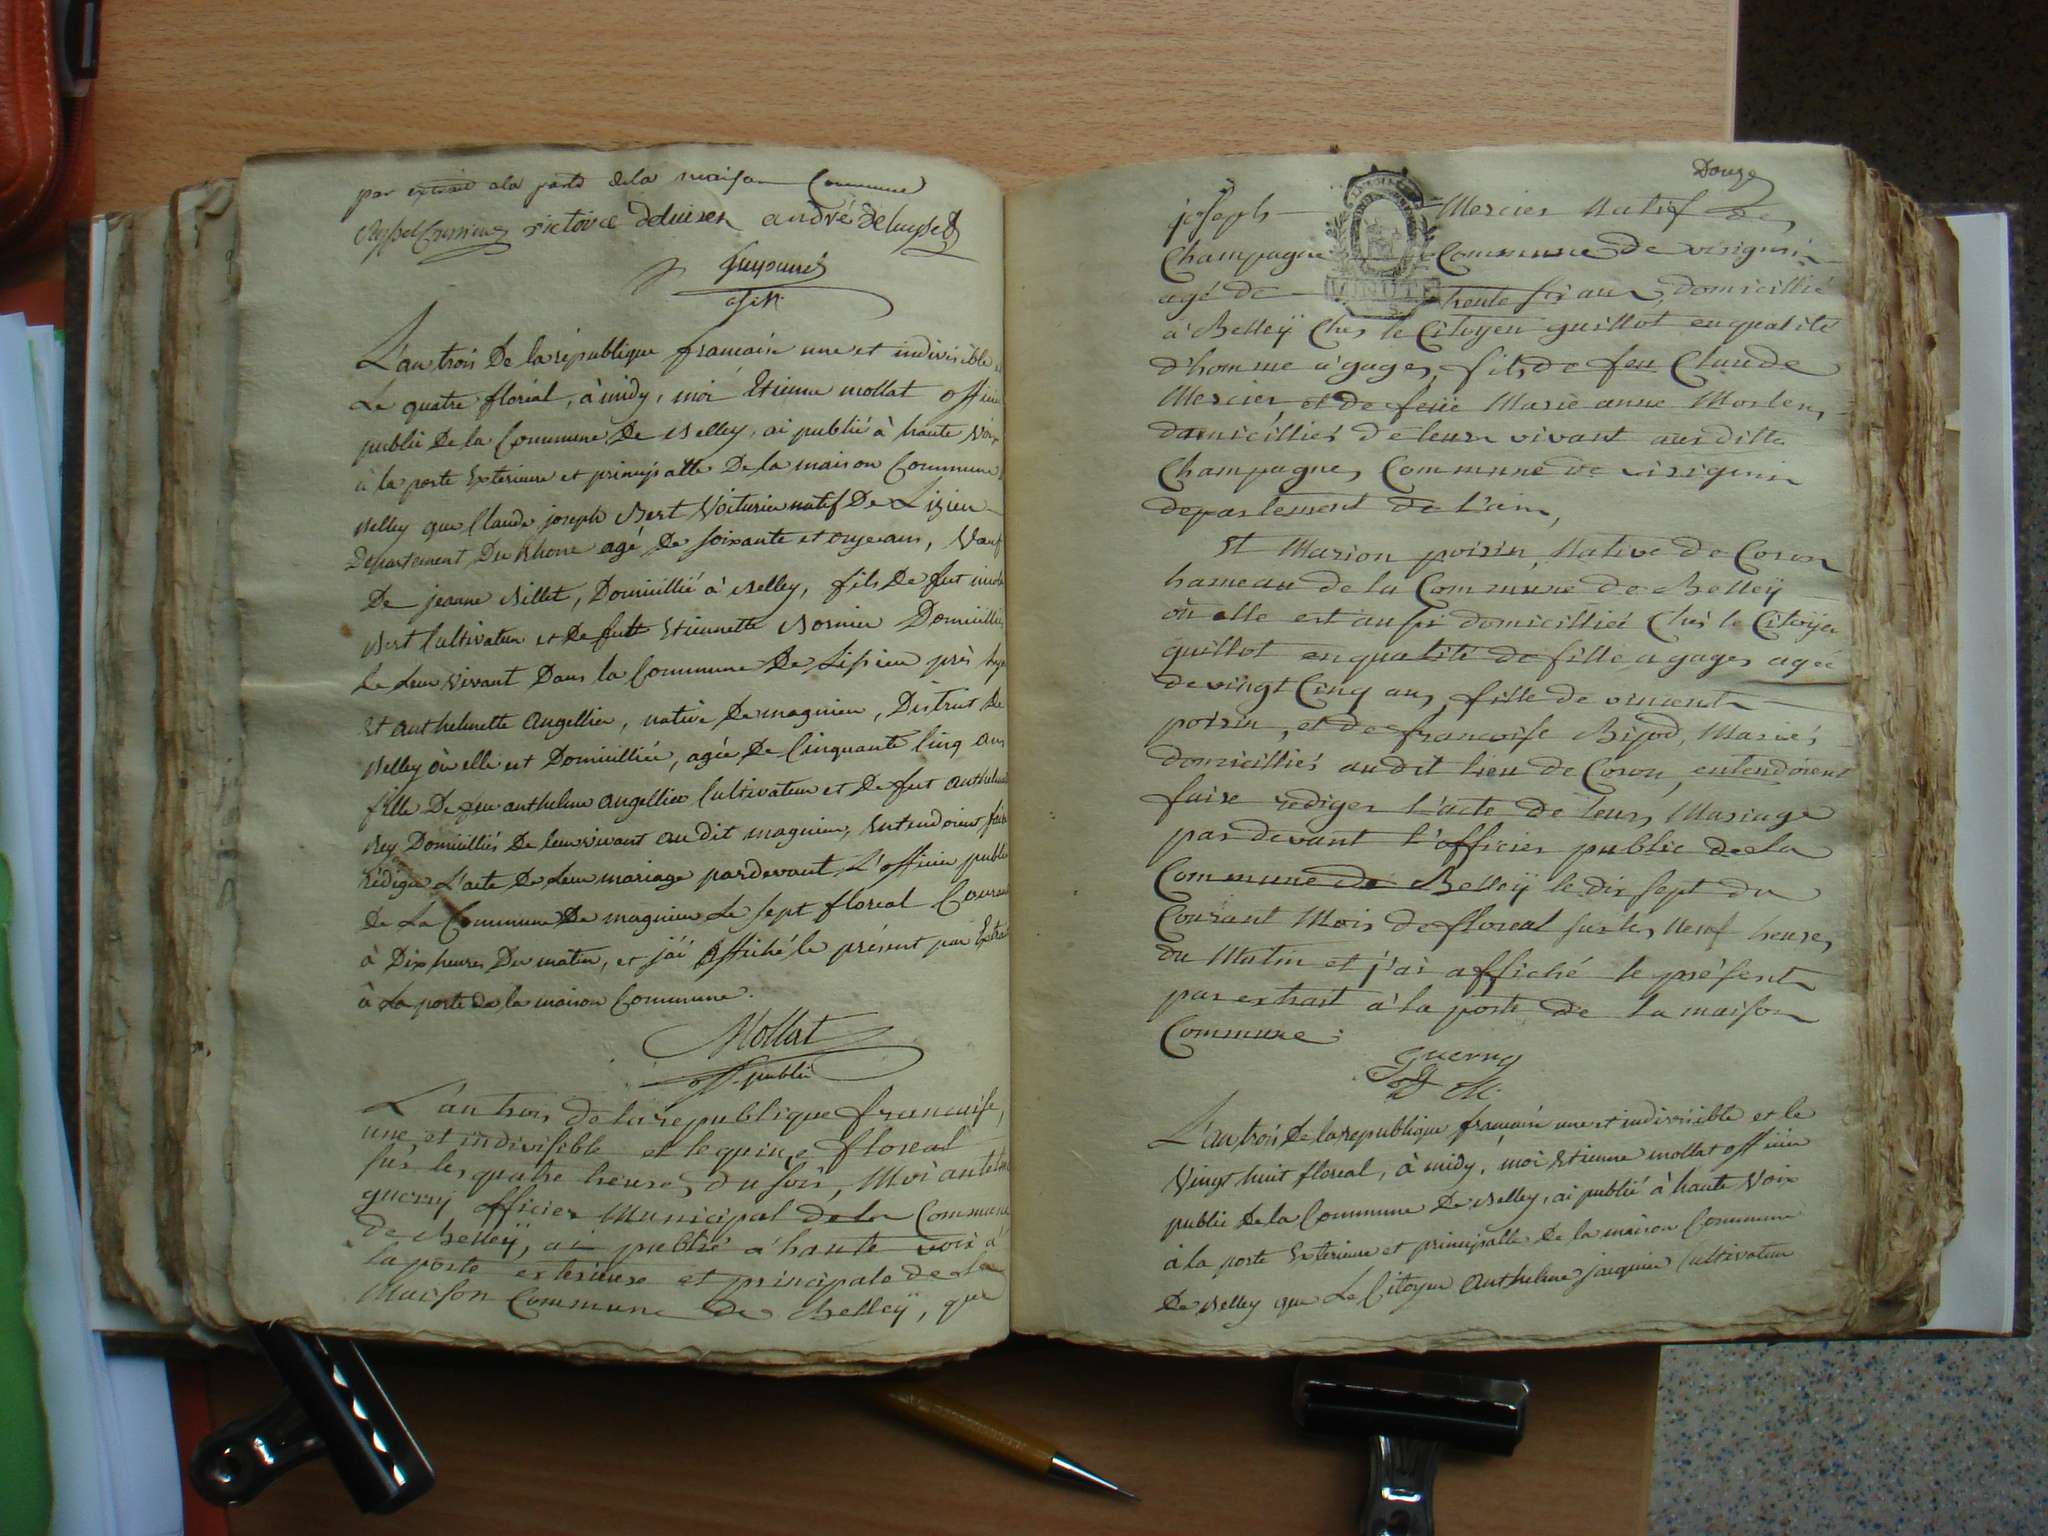 par extrait a la porte de la maison Commune
victoire andré
L'an trois De la republique francaise une et indivisible,
Le quatre floréal, à midy, moi Etienne mollat officier
public De la Commune De Belley, ai publié à haute Voix
à la porte Exterieure et principalle De la maison Commune
Belley que Claude joseph Bert Voiturier natif De
Departement Du Rhone agé De soixante et onze ans, Veuf
De jeanne Billet, Domicillié à Belley, fils De fut
Bert Cultivateur et De fut Etiennette Domicilliés
De Leur Vivant Dans la Commune De près
Et anthelmette angellier, native De magnieu, District De
Belley où elle est Domicilliée, agée De Cinquante Cinq ans
fille De feu anthelme angellier Cultivateur et De fut
Rey Domicilliés De leur vivant au dit magnieu, Entendoient faire
rédiger L'acte De Leur mariage pardevant L'officier public
De La Commune De magnieu Le sept floreal Courant
à Dix heures Du matin, et j'ai affiché le présent par Extrait
à La porte de la maison Commune.
Mollat
off. public
L'an trois de la republique francaise,
une et indivisible et le quinze floreal
sur les quatre heures du soir, Moi
guerry officier Municipal de la Commune
de Belleÿ, ai publié a haute voix a
la porte exterieure et principale de la
Maison Commune de Belleÿ, que
Douze
joseph Mercier Natif de
Champagne Commune de virignin
agé de trente six ans domicillié
à Belleÿ Ches le Citoyen guillot en qualité
d'homme a gages, fils de feu Claude
Mercier, et de feüe Marie anne
domicilliés de leur vivant audit
Champagne, Commune de virignin
departement de l'ain,
Et Marion poisin, Native de Coron
hameau de la Commune de Belleÿ
où elle est aussi domicilliée Chés le Citoÿen
guillot en qualité de fille a gages agée
de vingt Cinq ans, fille de vincent
poisin, et de francoise Bijod, Mariés
domicilliés audit lieu de Coron, entendoient
faire rediger l'acte de leur Mariage
par devant l'officier public de la
Commune de Belleÿ le dix sept du
Courant Mois de floreal sur les Neuf heures
du Matin et j'ai affiché le présent
par extrait a la porte de la maison
Commune.
guerry
L'an trois De la republique francaise une et indivisible et le
Vingt huit floreal, à midy, moi Etienne mollat officier
public De la Commune De Belley, ai publié à haute Voix
à la porte Exterieure et principalle De la maison Commune
De Belley que Le Citoyen Anthelme jacquier Cultivateur